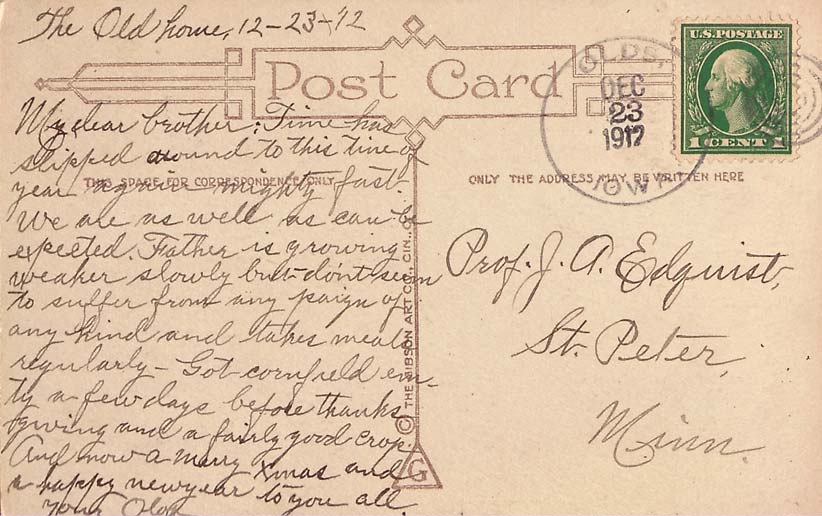 The Old home, 12-23-'12
Post Card
U.S. POSTAGE
1 CENT 1
OLDS,
DEC
23
1912
IOWA
My dear brother: Time has
slipped around to this time of
year again mighty fast.
THIS SPACE FOR CORRESPONDENCE ONLY
ONLY THE ADDRESS MAY BE WRITTEN HERE
We are as well as can be
expected. Father is growing
weaker slowly but dont seem
to suffer from any paign of
any kind and takes meals
regularly - Got cornfield em-
ty a few days before thanks
giving and a fairly good crop.
And now a merry Xmas and
a happy newyear to you all
your Olof
© THE GIBSON ART CO., CIN., O.
G
Prof. J. A. Edquist,
St. Peter,
Minn.